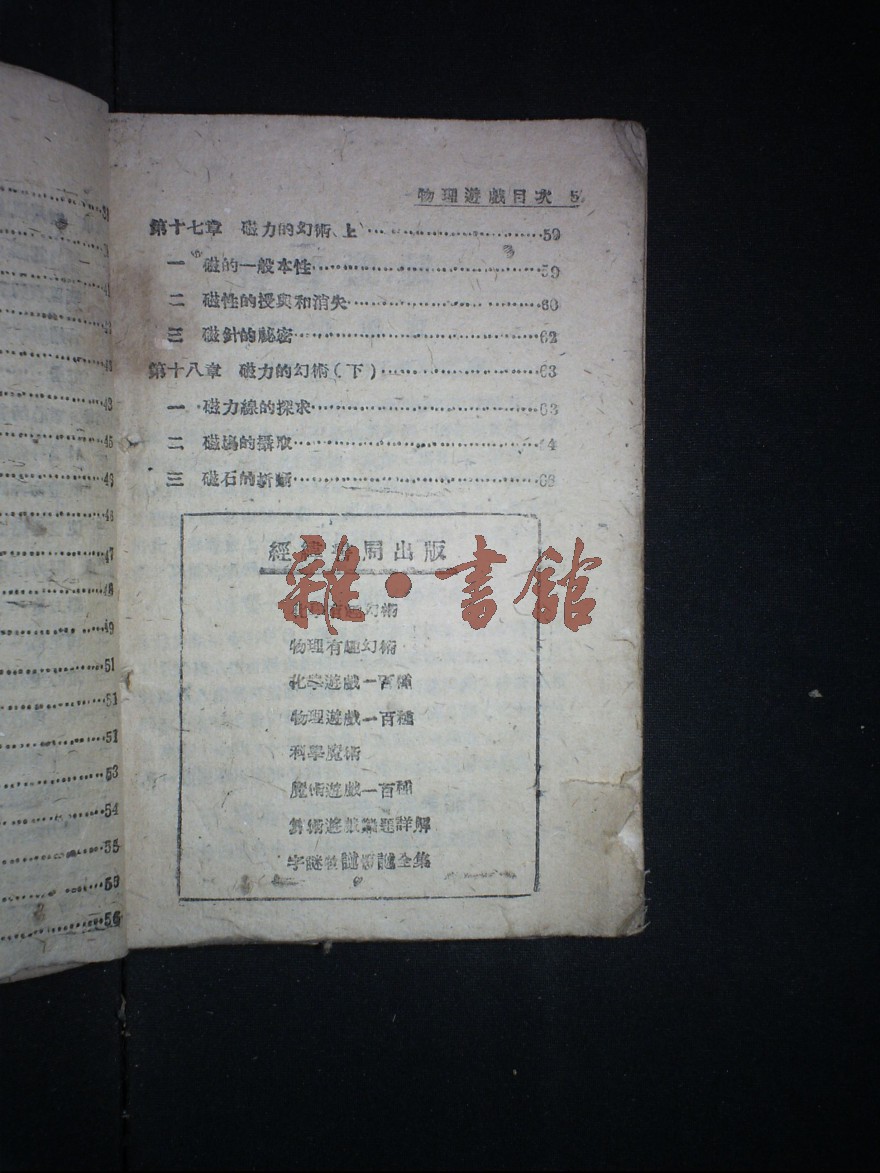 物理遊戲目次 5
第十七章 磁力的幻術(上)……59
一 磁的一般本性……59
二 磁性的授與和消失……60
三 磁針的祕密……62
第十八章 磁力的幻術(下)……63
一 磁力線的探求……63
二 的攝取……64
三 磁石的……
經緯書局出版
雜·書館
幻術
物理有趣幻術
化學遊戲一百種
物理遊戲一百種
科學魔術
魔術遊戲一百種
算術遊戲難題詳解
字謎 謎 謎全集
43
45
46
46
47
48
49
51
51
51
53
54
55
55
56